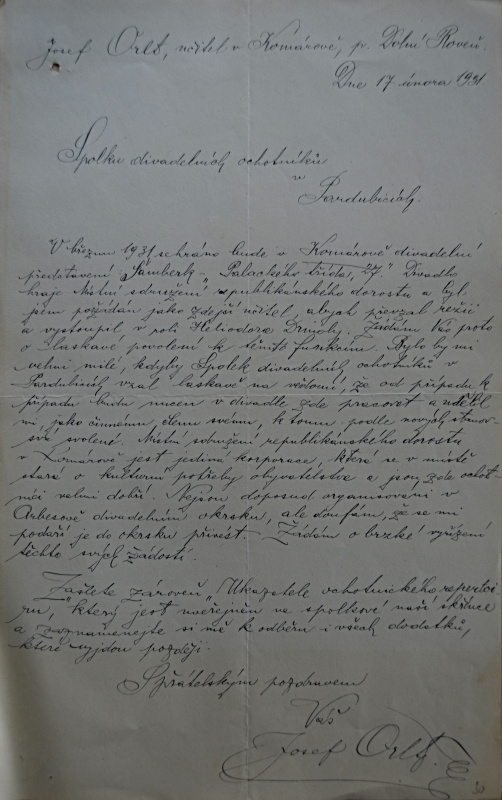 Josef Orlt, učitel v Komárově, p. Dolní Roveň.
Dne 17 února 1931.
Spolku divadelních ochotníků
v
Pardubicích.
V březnu 1931 sehráno bude v Komárově divadelní
představení Šamberk - „Palackého třída, 27." Divadlo
hraje Místní sdružení republikánského dorostu a byl
jsem požádán jako zdejší učitel, abych převzal režii
a vystoupil v roli Heliodora Žádám Vás proto
o laskavé povolení k těmto funkcím. Bylo by mi
velmi milé, kdyby Spolek divadelních ochotníků v
Pardubicích vzal laskavě na vědomí, že od případu k
případu budu nucen v divadle zde pracovat a udělil
mi jako činnému členu svému, k tomu, podle nových stanov
své svolení. Místní sdružení republikánského dorostu
v Komárově jest jediná korporace, která se v místě
stará o kulturní potřeby obyvatelstva a jsou zde ochot-
níci velmi dobří. Nejsou doposud organisováni v
Arbesově divadelním okrsku, ale doufám, že se mi
podaří je do okrsku přivést. Žádám o brzké vyřízení
těchto svých žádostí.
Zašlete zároveň „Ukazatele ochotnického repertoi-
ru," který jest uveřejněn ve spolkové naší skřínce
a zaznamenejte si mě k odběru i všech dodatků,
které vyjdou později.
S přátelským pozdravem
Váš
Josef Orlt.
30